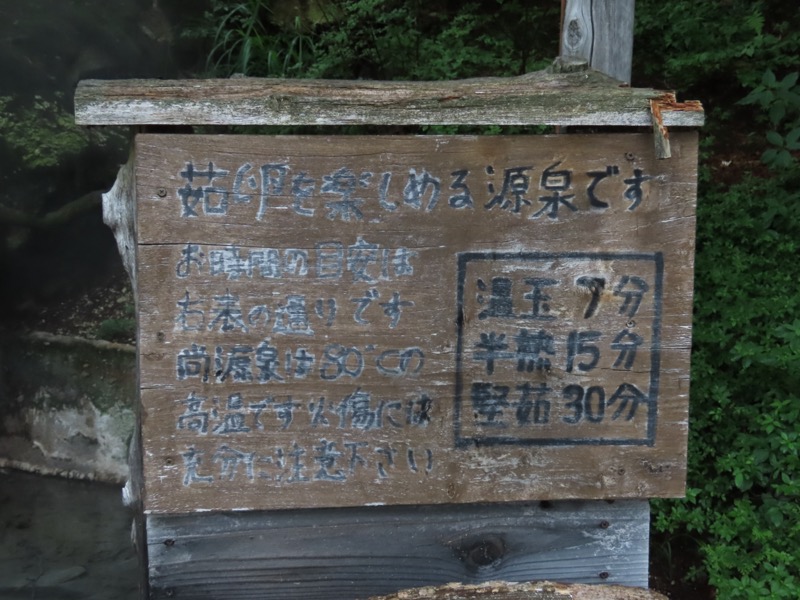 茹卵を楽しめる源泉です
お時間の目安は
右表の通りです
尚源泉は80℃の
高温です火傷には
充分に注意下さい
温玉 7分
半熟 15分
堅茹 30分